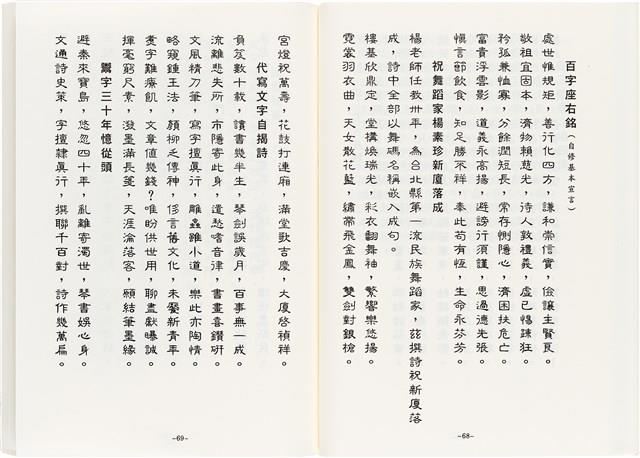 百字座右銘（自修基本宣言）
處世惟規矩，善行化四方，謙和崇信實，儉讓主賢良。
敬祖宜固本，濟物賴慈光，待人敦禮義，處己惕疎狂。
矜孤兼恤寡，分餘潤短長，常存惻隱心，濟困扶危亡。
富貴浮雲影，道義永高揚，避謗行須謹，思過德先張。
慎言節飲食，知足勝不祥，奉此苟有恆，生命永芬芳。
祝舞蹈家楊素珍新廈落成
楊老師任教卅年，為台北縣第一流民族舞蹈家，茲撰詩祝新廈落
成，詩中全部以舞碼名稱嵌入成句。
樓基欣鼎定，堂構煥瑞光，彩衣翻舞袖，繁響樂悠揚。
霓裳羽衣曲，天女散花籃，繡帶飛金鳳，雙劍對銀槍。
－68－
宮燈祝萬壽，花鼓打連廂，滿堂歌吉慶，大廈啓禎祥。
代寫文字自揭詩
負笈數十載，讀書幾半生，琴劍誤歲月，百事無一成。
亂離悲失所，市隱寄此身，遣愁嗜音律，書畫喜鑽研。
文風精刀筆，寫字擅真行，雕蟲雖小道，樂此亦陶情。
略窺鍾王法，顏柳乏傳神，侈言舊文化，未屬新青年。
煑字難療飢，文章值幾錢？唯盼供世用，聊盡獻曝誠。
揮毫窮尺素，潑墨滿長箋，天涯淪落客，願結筆墨緣。
鬻字三十年憶從頭
避秦來寶島，悠忽四十年，亂離寄濁世，琴書娛心身。
文通詩史策，字擅隸真行，撰聯千百對，詩作幾萬扁。
－69－